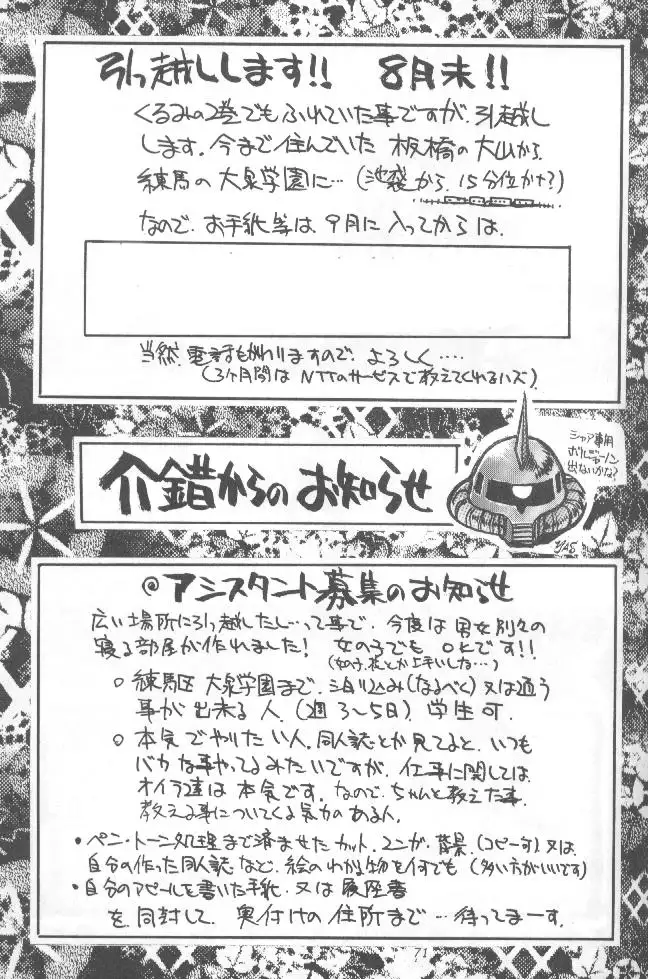 引っ越しします!! 8月末!!
くるみの2巻でもふれていた事ですが、引越し
します。今まで住んでいた 板橋の大山から
練馬の大泉学園に…(池袋から、15分位かナ?)
なので、お手紙等は、9月に入ってからは、
当然、電話もかわりますので、よろしく‥‥
(3ヶ月間は NTTのサービスで教えてくれるハズ)
介錯からのお知らせ
シャア専用
ボルジャーノン
出ないかな?
◎アシスタント募集のお知らせ
広い場所に引っ越したし…って事で、今度は男女別々の
寝る部屋が作れました! 女の子でも OKです!!
(女の子、花とか上手いしね…)
○練馬区 大泉学園まで、泊り込み(なるべく)又は通う
事が出来る人。(週3〜5日)学生可。
○本気でやりたい人。同人誌とか見てると、いつも
バカな事やってるみたいですが、仕事に関しては
オイラ達は本気です。なので、ちゃんと教えた事、
教える事についてくる気力のある人。
・ペン・トーン処理まで済ませたカット、マンガ、背景、(コピー可)又は、
自分の作った同人誌など、絵のわかる物を何でも (多い方がいいです)
・自分のアピールを書いた手紙、又は履歴書
を同封して、奥付けの住所まで…待ってまーす。
71